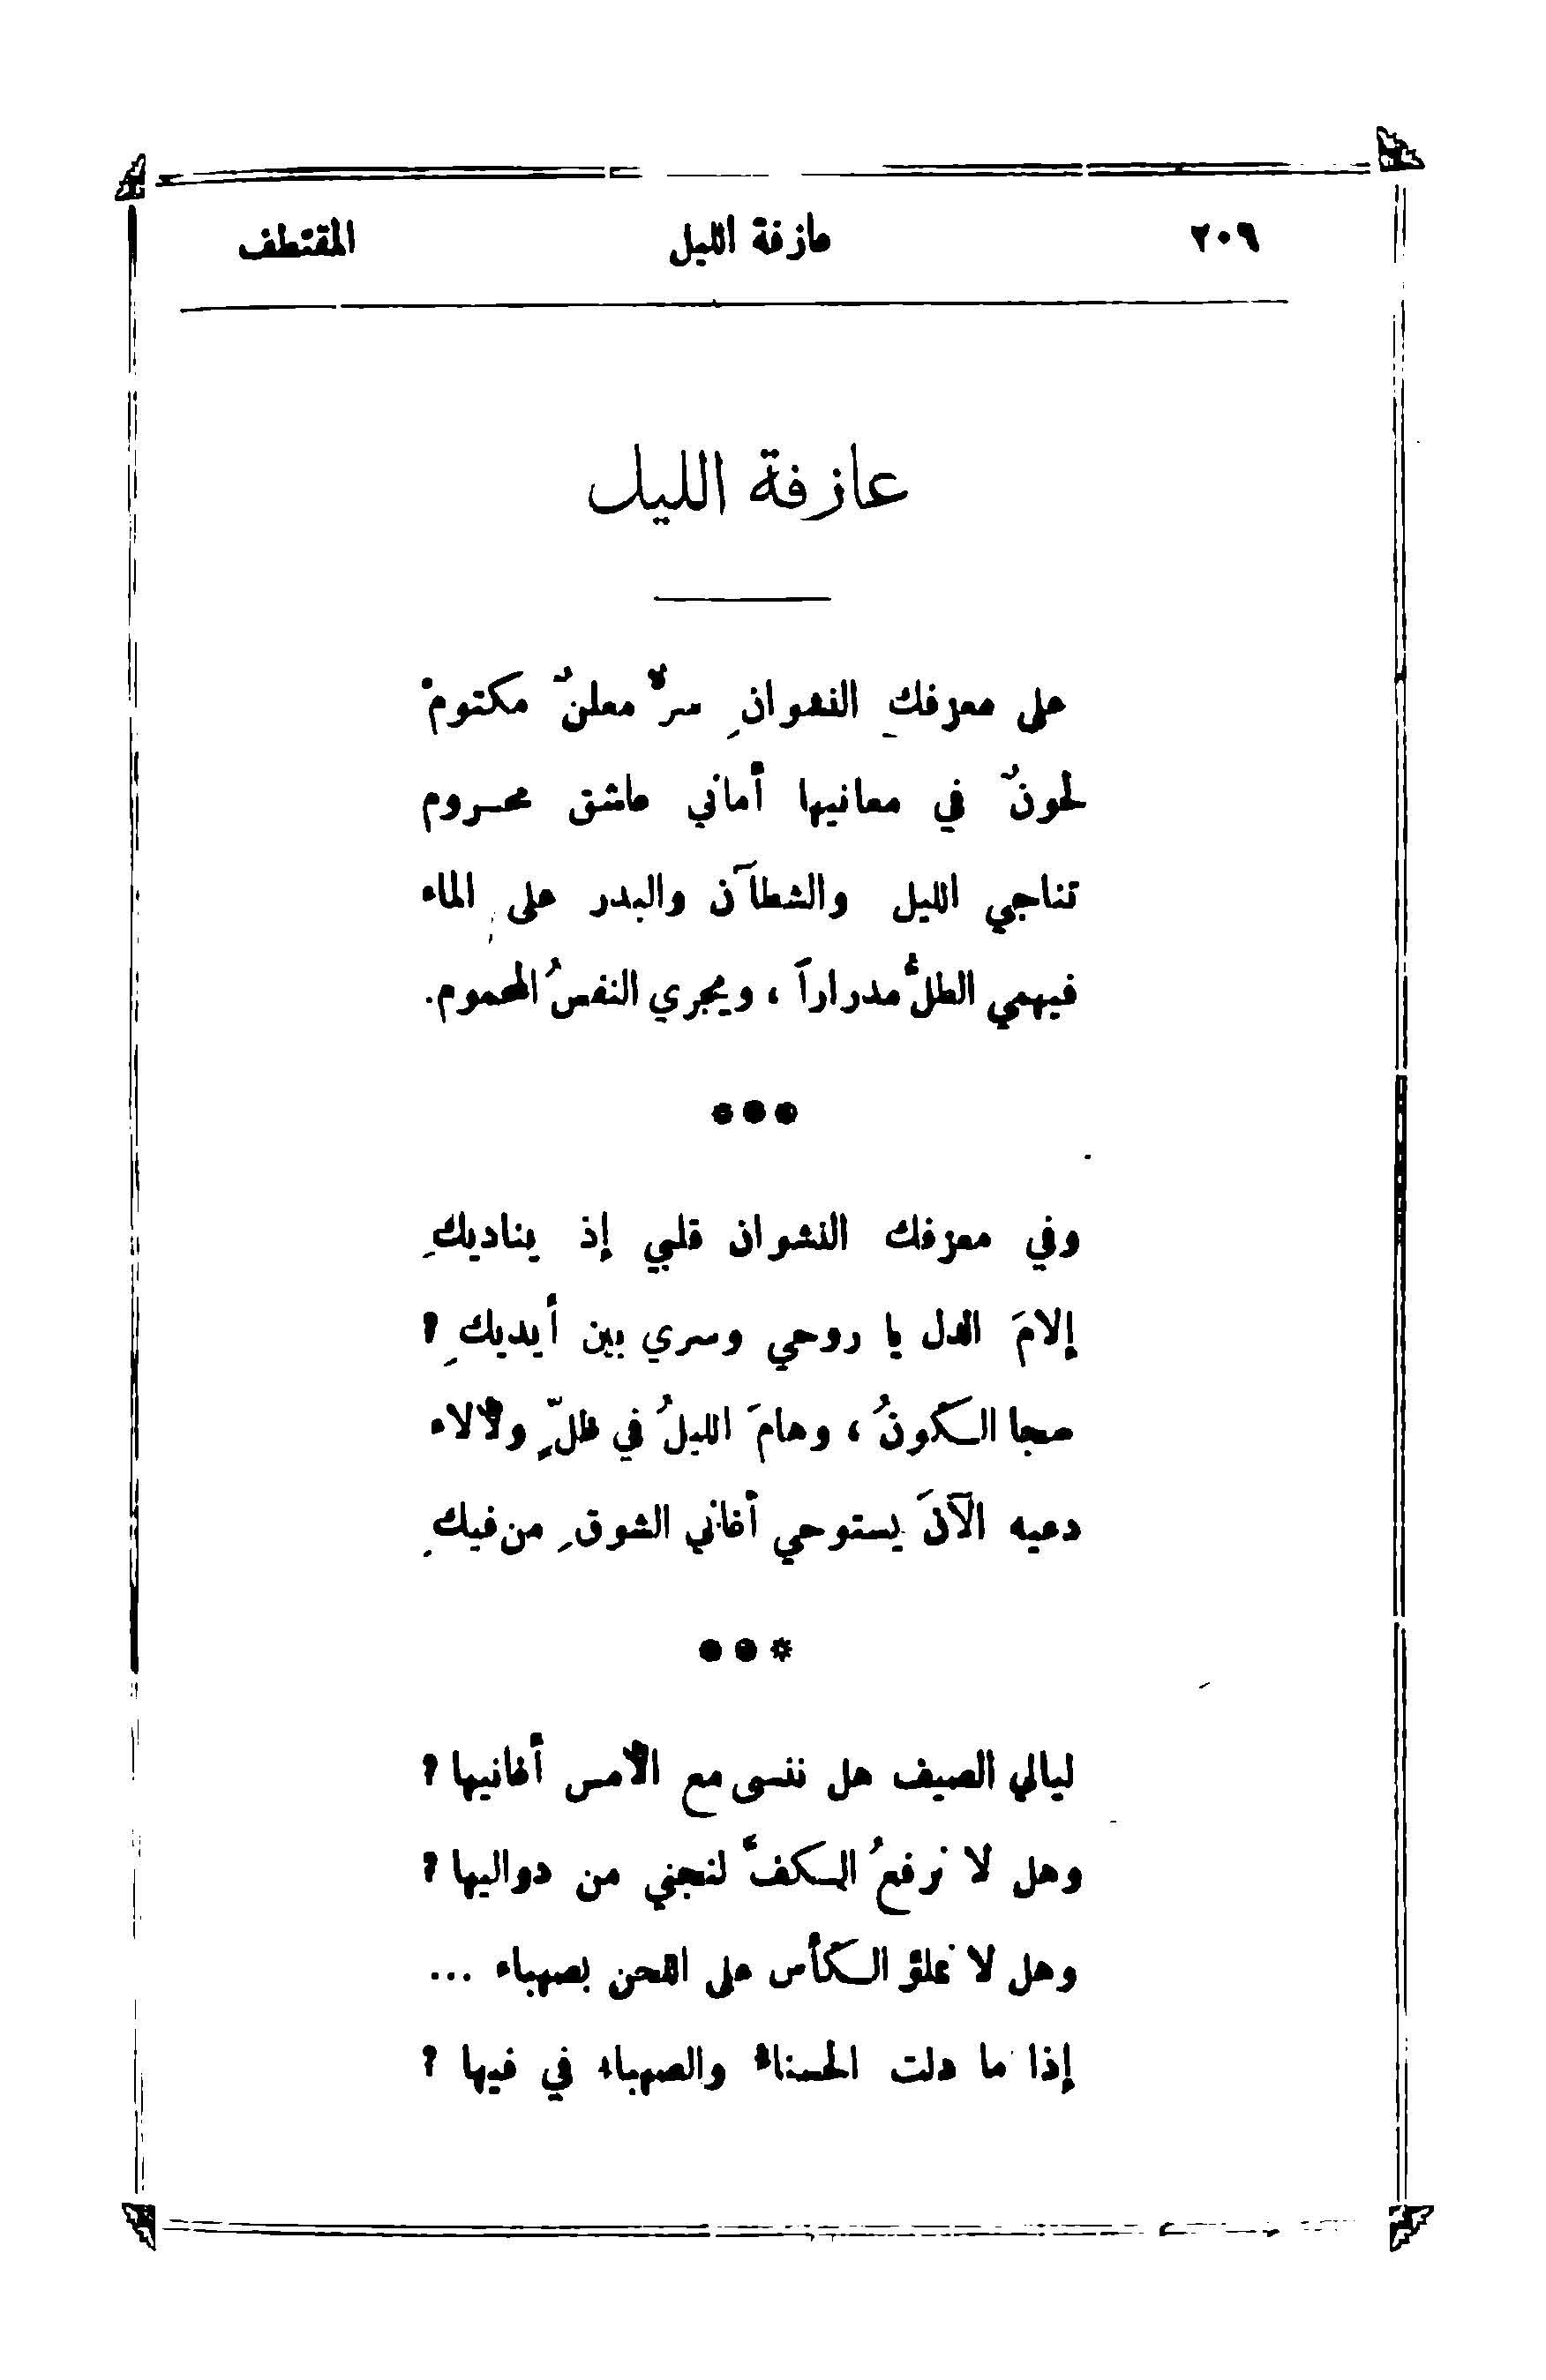 ٢٠٩ عازفة الليل المقتطف
عازفة الليل
على معزفكِ النشوانِ سرٌّ معلنٌ مكتومْ
لحونٌ في معانيها أماني عاشق محروم
تناجي الليل والشطآن والبدر على الماء
فيهمي الطلُّ مدراراً ، ويجري النفسُ المحموم.
***
وفي معزفك النشوان قلبي إذ يناديكِ
إلامَ الدل يا روحي وسري بين أيديكِ ؟
سجا الكونُ ، وهامَ الليلُ في ظلٍّ ولألاء
دعيه الآنَ يستوحي أغاني الشوقِ من فيكِ
***
ليالي الصيف هل ننسى مع الأمس أغانيها ؟
وهل لا نرفعُ الكفَّ لنجني من دواليها ؟
وهل لا نملؤ الكأس على اللحن بصهباء ...
إذا ما دلت الحسناء والصهباء في فيها ؟